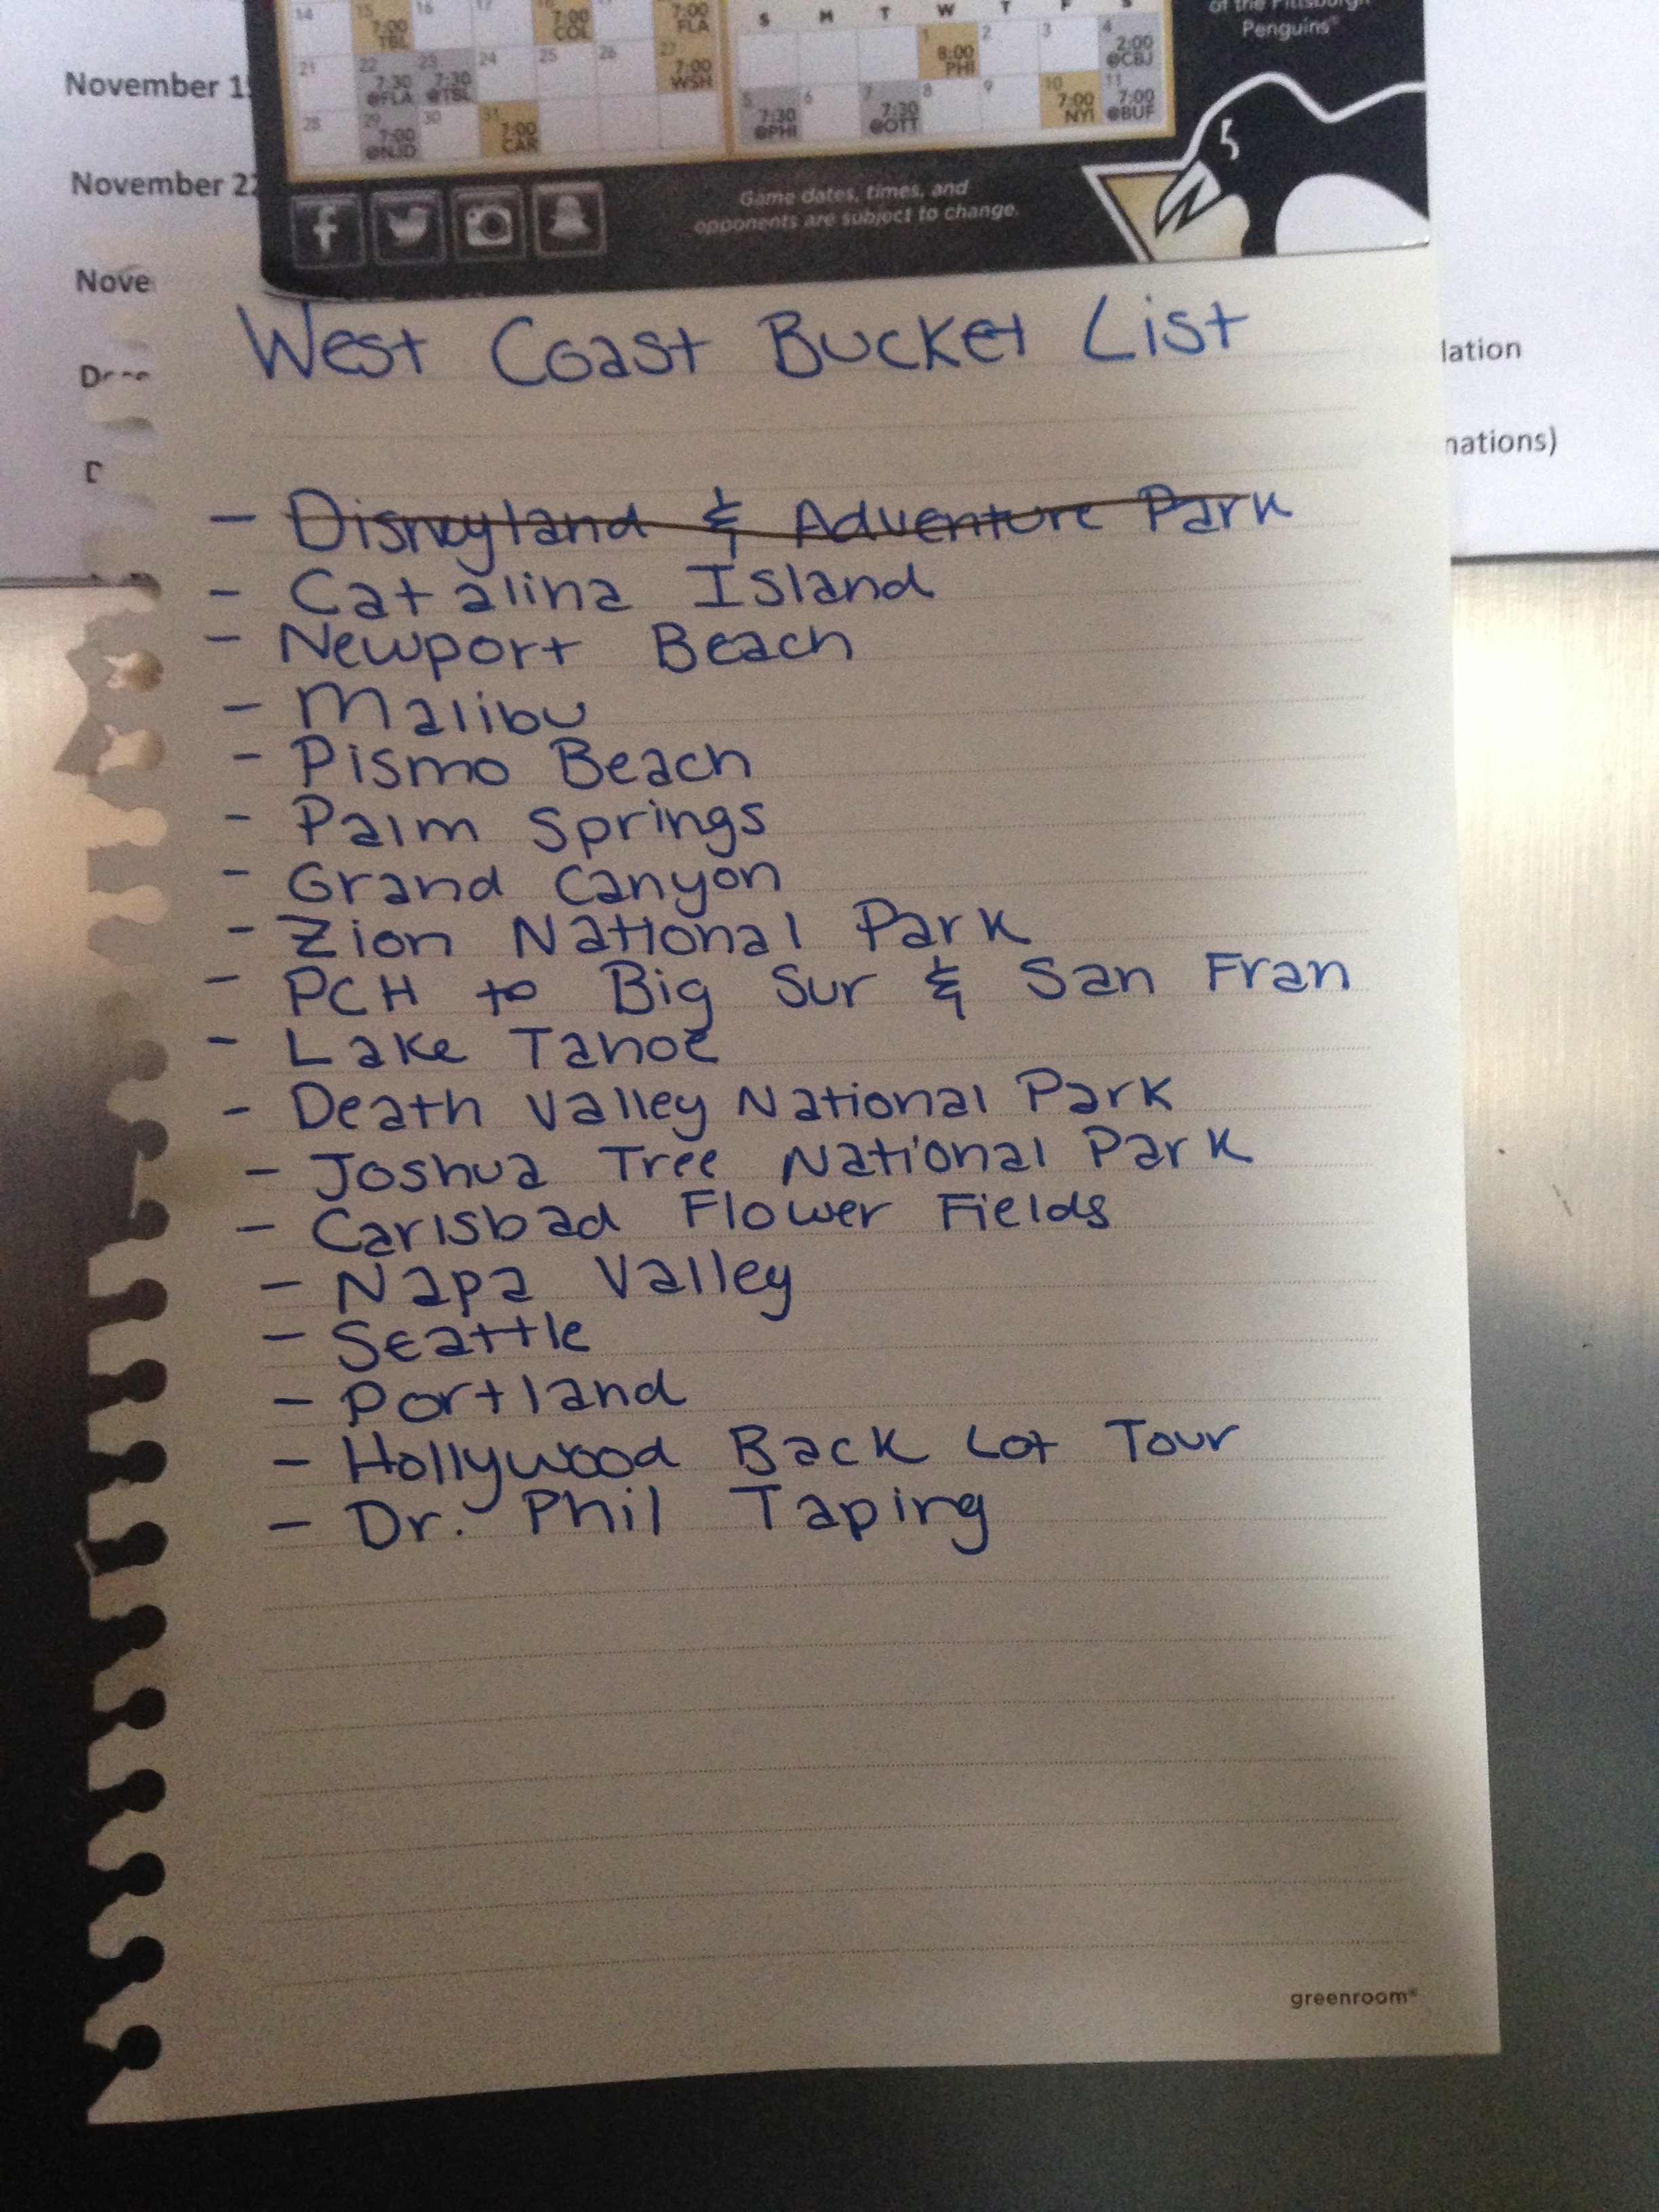 of the Pittsburgh
Penguins®
S M T W T F S
14 15 7:00 TBL 16 17 7:00 COL 7:00 FLA
21 22 7:30 @FLA 23 7:30 @TBL 24 25 26 27 7:00 WSH
28 29 7:00 @NJD 30 31 7:00 CAR
1 8:00 PHI 2 3 4 2:00 @CBJ
5 7:30 @PHI 6 7 7:30 @OTT 8 9 10 7:00 NYI 11 7:00 @BUF
Game dates, times, and
opponents are subject to change.
November
November
Nove
lation
nations)
West Coast Bucket List
- Disneyland & Adventure Park
- Catalina Island
- Newport Beach
- Malibu
- Pismo Beach
- Palm Springs
- Grand Canyon
- Zion National Park
- PCH to Big Sur & San Fran
- Lake Tahoe
- Death Valley National Park
- Joshua Tree National Park
- Carlsbad Flower Fields
- Napa Valley
- Seattle
- Portland
- Hollywood Back Lot Tour
- Dr. Phil Taping
greenroom®